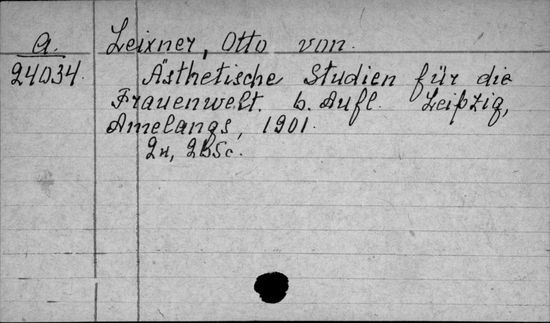 a. Leixner, Otto von.
24034. Ästhetische Studien für die
Frauenwelt. 6. Aufl. Leipzig,
Amelangs, 1901.